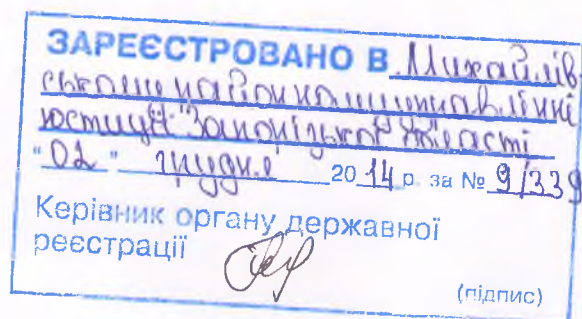 ЗАРЕЄСТРОВАНО В Михайлів
ському районному управлінні
юстиції Запорізької області
"02" грудня 2014 р. за № 9/339
Керівник органу державної
реєстрації
(підпис)